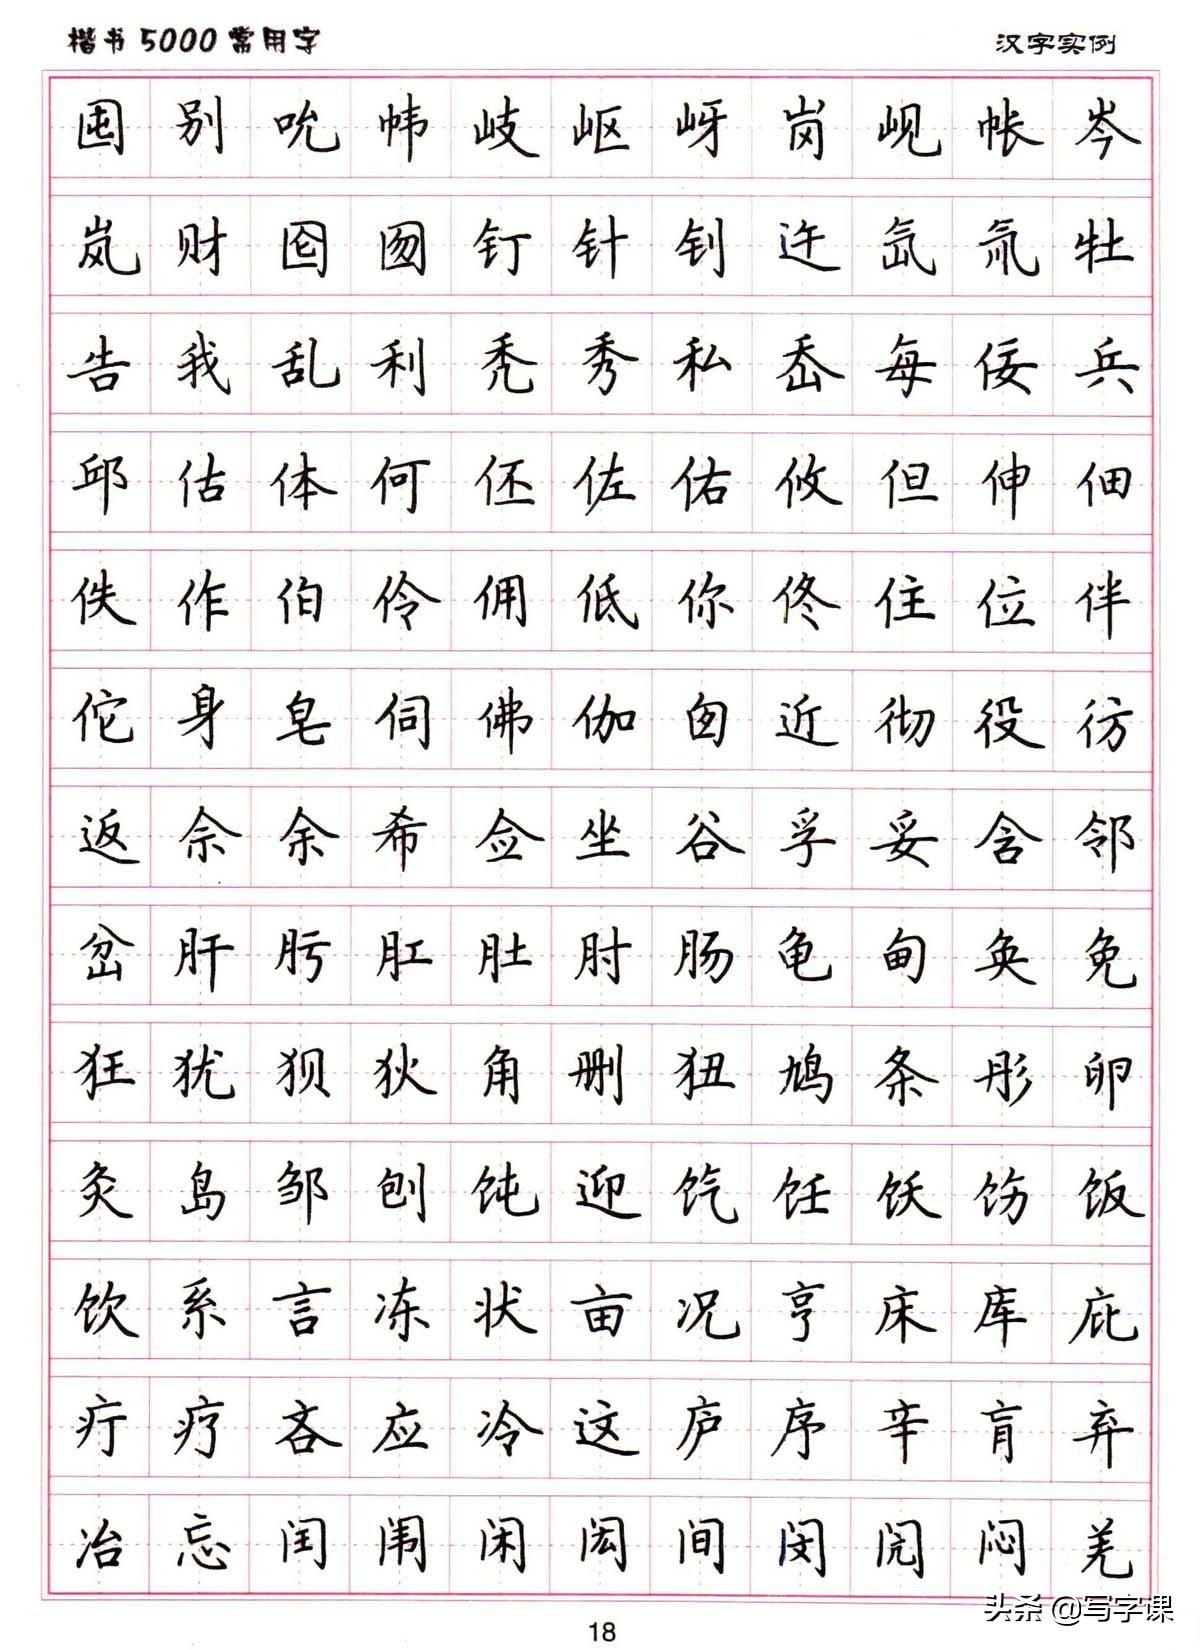 楷书5000常用字 汉字实例
囤 别 吮 帏 岐 岖 岈 岗 岘 帐 岑
岚 财 囵 囫 钉 针 钊 迕 氙 氚 牡
告 我 乱 利 秃 秀 私 岙 每 佞 兵
邱 估 体 何 伾 佐 佑 攸 但 伸 佃
佚 作 伯 伶 佣 低 你 佟 住 位 伴
佗 身 皂 伺 佛 伽 囱 近 彻 役 彷
返 佘 余 希 佥 坐 谷 孚 妥 含 邻
岔 肝 肟 肛 肚 肘 肠 龟 甸 奂 免
狂 犹 狈 狄 角 删 狃 鸠 条 彤 卵
灸 岛 邹 刨 饨 迎 饩 饪 饫 饬 饭
饮 系 言 冻 状 亩 况 亨 床 库 庇
疔 疗 吝 应 冷 这 庐 序 辛 肓 弃
冶 忘 闰 闱 闲 闳 间 闵 阅 闷 羌
18
头条 @写字课